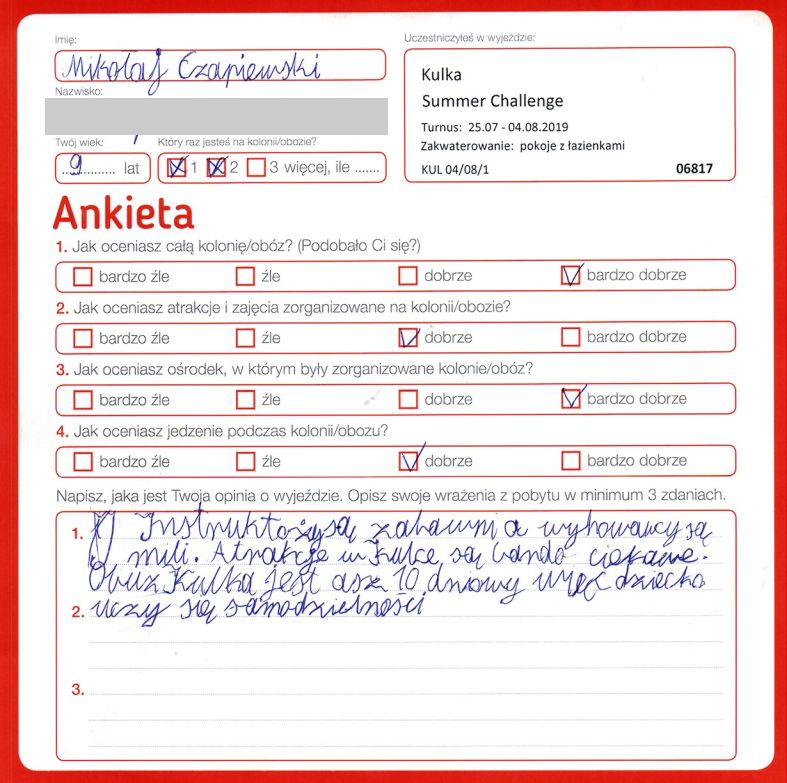 Imię:
Mikołaj Czapiewski
Nazwisko:
Twój wiek:
9 lat
Który raz jesteś na kolonii/obozie?
1 2 3 więcej, ile .......
Uczestniczyłeś w wyjeździe:
Kulka
Summer Challenge
Turnus: 25.07 - 04.08.2019
Zakwaterowanie: pokoje z łazienkami
KUL 04/08/1 06817
Ankieta
1. Jak oceniasz całą kolonię/obóz? (Podobało Ci się?)
bardzo źle źle dobrze bardzo dobrze
2. Jak oceniasz atrakcje i zajęcia zorganizowane na kolonii/obozie?
bardzo źle źle dobrze bardzo dobrze
3. Jak oceniasz ośrodek, w którym były zorganizowane kolonie/obóz?
bardzo źle źle dobrze bardzo dobrze
4. Jak oceniasz jedzenie podczas kolonii/obozu?
bardzo źle źle dobrze bardzo dobrze
Napisz, jaka jest Twoja opinia o wyjeździe. Opisz swoje wrażenia z pobytu w minimum 3 zdaniach.
1. Instruktoży są zabawni a wyhowawcy są
mili. Atrakcje w Kulce są bardo ciekawe.
Obuz Kulka jest asz 10 dniowy więc dziecko
2. uczy się samodzielności
3.